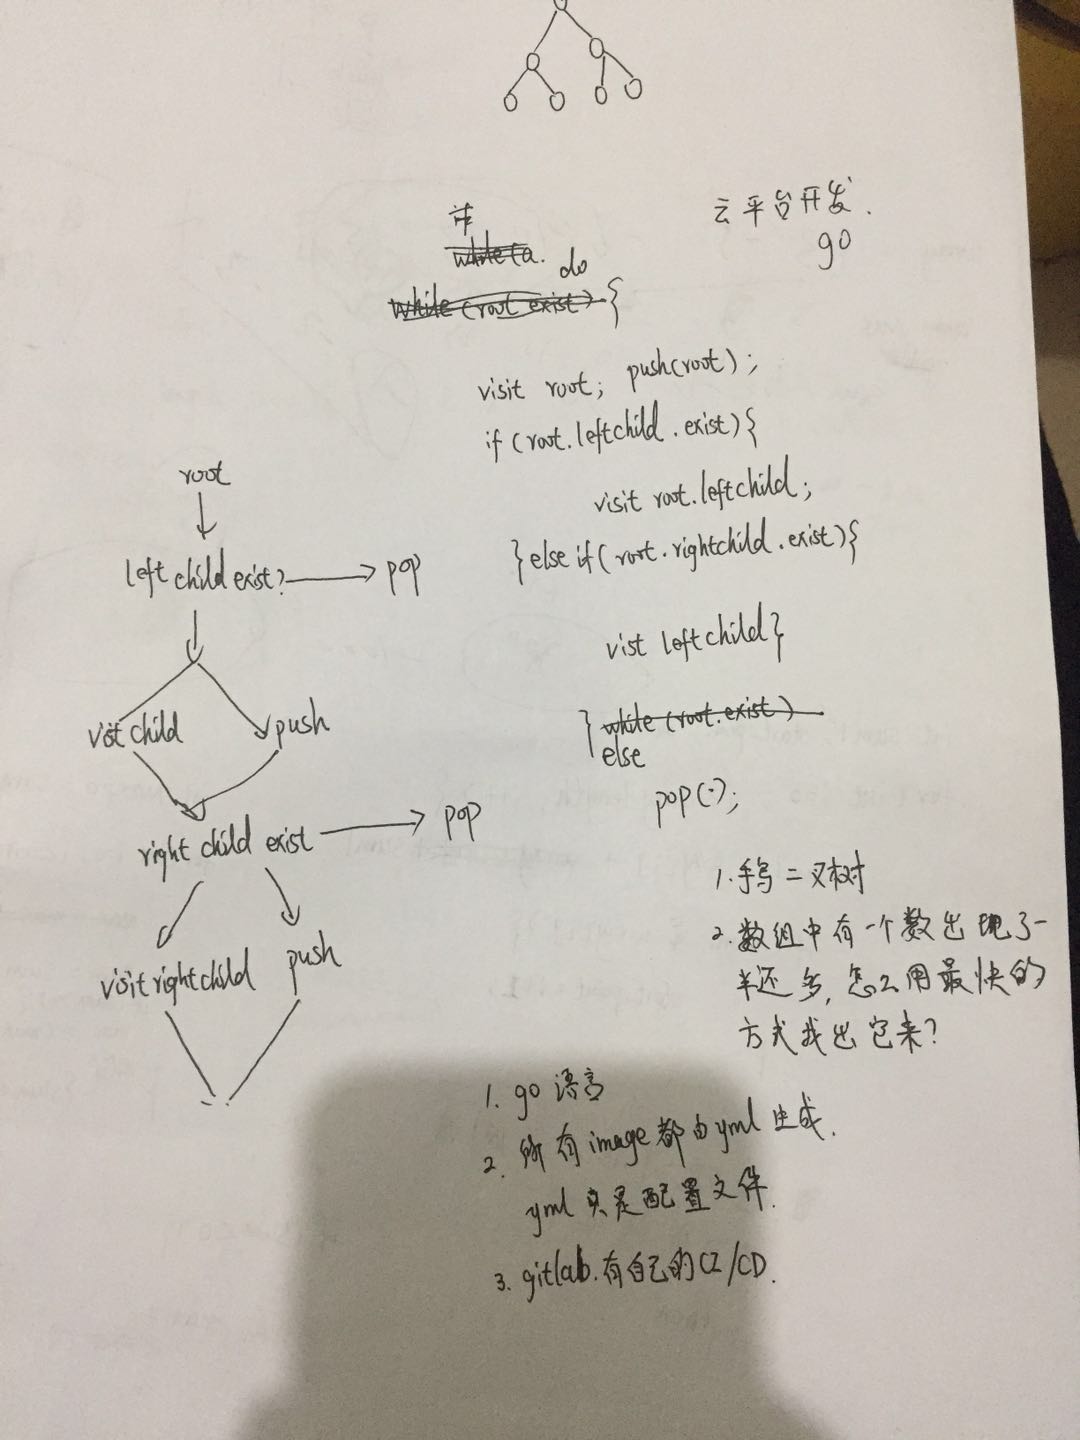 云平台开发.
go
if
while(a.
do
while (root exist) {
visit root; push(root);
if (root.leftchild.exist){
visit root.leftchild;
}else if(root.rightchild.exist){
vist leftchild}
} while (root.exist)
else
pop(·);
root
left child exist? pop
visit child push
right child exist pop
visit rightchild push
1.手写二叉树
2.数组中有一个数出现了一
半还多,怎么用最快的
方式找出它来?
1. go 语言
2. 所有image都由yml生成.
yml只是配置文件.
3. gitlab.有自己的CI/CD.